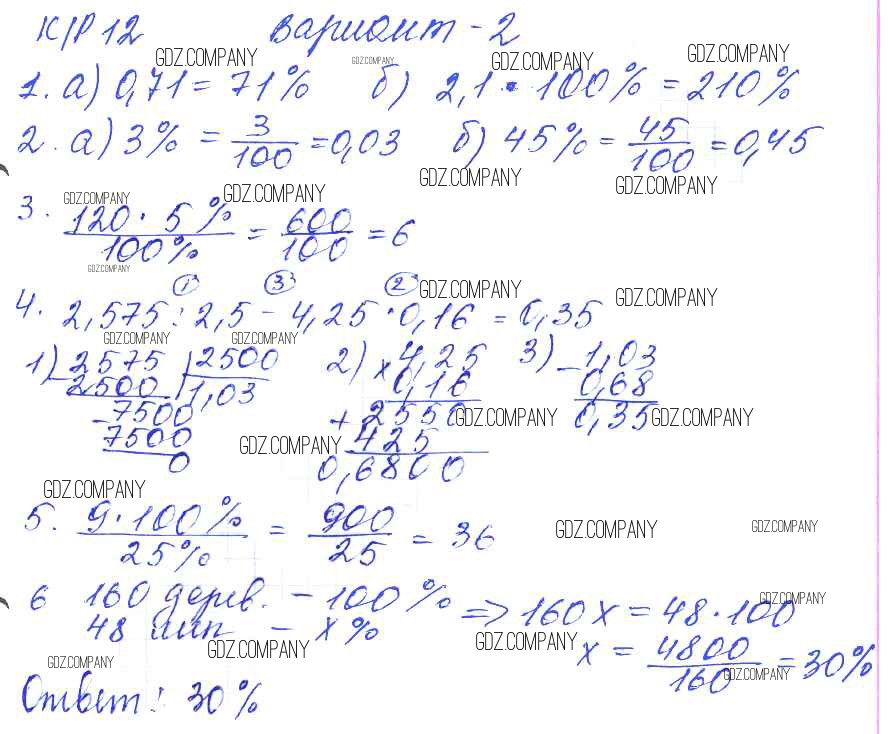 К/Р 12 Вариант - 2
GDZ.COMPANY GDZ.COMPANY GDZ.COMPANY GDZ.COMPANY
1. а) 0,71 = 71% б) 2,1 · 100% = 210%
2. а) 3% = 3/100 = 0,03 б) 45% = 45/100 = 0,45
GDZ.COMPANY GDZ.COMPANY
GDZ.COMPANY GDZ.COMPANY
3. 120 · 5% / 100% = 600/100 = 6
GDZ.COMPANY
1 3 2 GDZ.COMPANY GDZ.COMPANY
4. 2,575 : 2,5 - 4,25 · 0,16 = 0,35
GDZ.COMPANY GDZ.COMPANY
1) 2575 | 2500 2) × 4,25 3) - 1,03
- 2500 1,03 0,16 0,68
- 7500 + 2550 0,35
GDZ.COMPANY GDZ.COMPANY
7500 425
GDZ.COMPANY
0 0,6800
GDZ.COMPANY
5. 9 · 100% / 25% = 900/25 = 36
GDZ.COMPANY GDZ.COMPANY
6 160 дерев. - 100% => 160 x = 48 · 100
GDZ.COMPANY
48 лип - x % x = 4800/160 = 30%
GDZ.COMPANY GDZ.COMPANY GDZ.COMPANY GDZ.COMPANY
Ответ: 30%